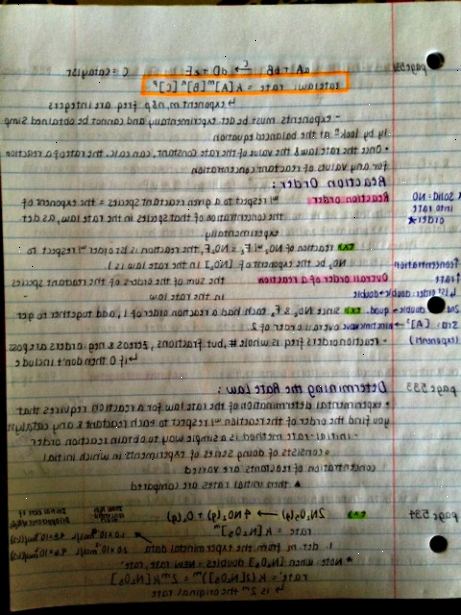 page 531
aA + bB ⇌ dD + eE C = Catalyst
C
rate law: rate = K[A]^m [B]^n [C]^p
↳ exponent m, n & p freq. are integers
- exponents must be det. experimentally and cannot be obtained simply
by lookg at the balanced equation
• Once the rate law & the value of the rate constant, can calc. the rate of a reaction
for any values of reactant concentration
Reaction Order:
Reaction order w/ respect to a given reactant species = the exponent of
the concentration of that species in the rate law, as det
experimentally
* SOLID: NO
into rate
order ★
ex) reaction of NO₂ w/ F₂ = NO₂F, the reaction is 1st order w/ respect to
NO₂ bc the exponent of [NO₂] in the rate law is 1
Overall order of a reaction the sum of the orders of the reactant species
in the rate law
↑ concentration
↑ rate
1st order: double → double
2nd: double → quad.
3rd: [A]³ →
(exponent)
ex) since NO₂ & F₂ each had a reaction order of 1, add together to get
overall order of 2.
- reaction orders freq. is whole #, but fractions, zeros & neg. orders are poss.
↳ if 0 then don't include
page 533
Determining the Rate Law:
• experimental determination of the rate law for a reaction requires that
you find the order of the reaction w/ respect to each reactant & any catalyst
- initial-rate method is a simple way to obtain reaction order
consists of doing series of experiments in which initial
concentration of reactants are varied
▲ then initial rates are compared
page 534
ex) 2N₂O₅(g) → 4NO₂(g) + O₂(g)
rate = K[N₂O₅]^m
1. det. m from the experimental data
* Note: when [N₂O₅] doubles - New rate, rate'
rate' = K(2[N₂O₅])^m = 2^m K[N₂O₅]^m
↳ is 2^m the original rate